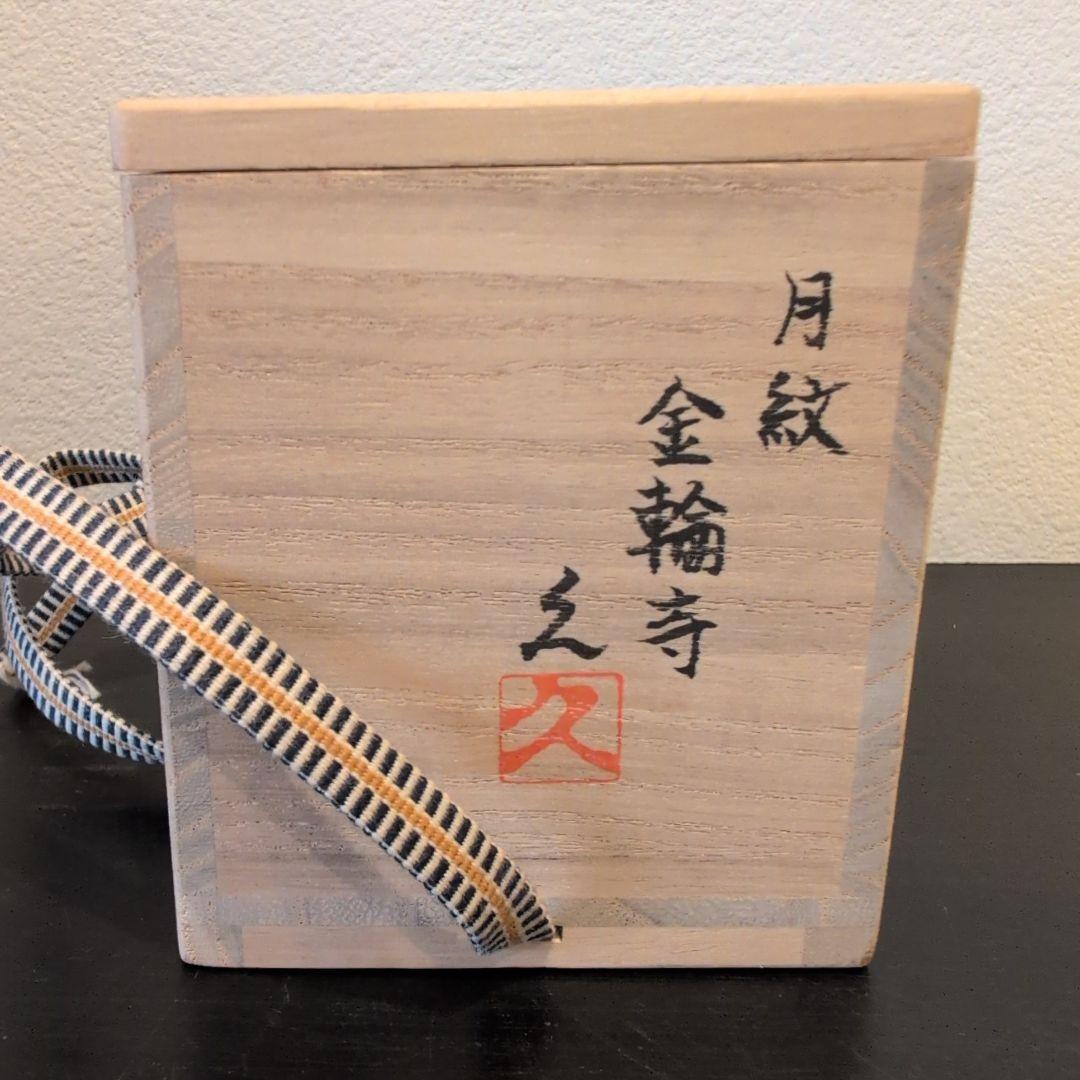 月紋
金輪寺
久
久